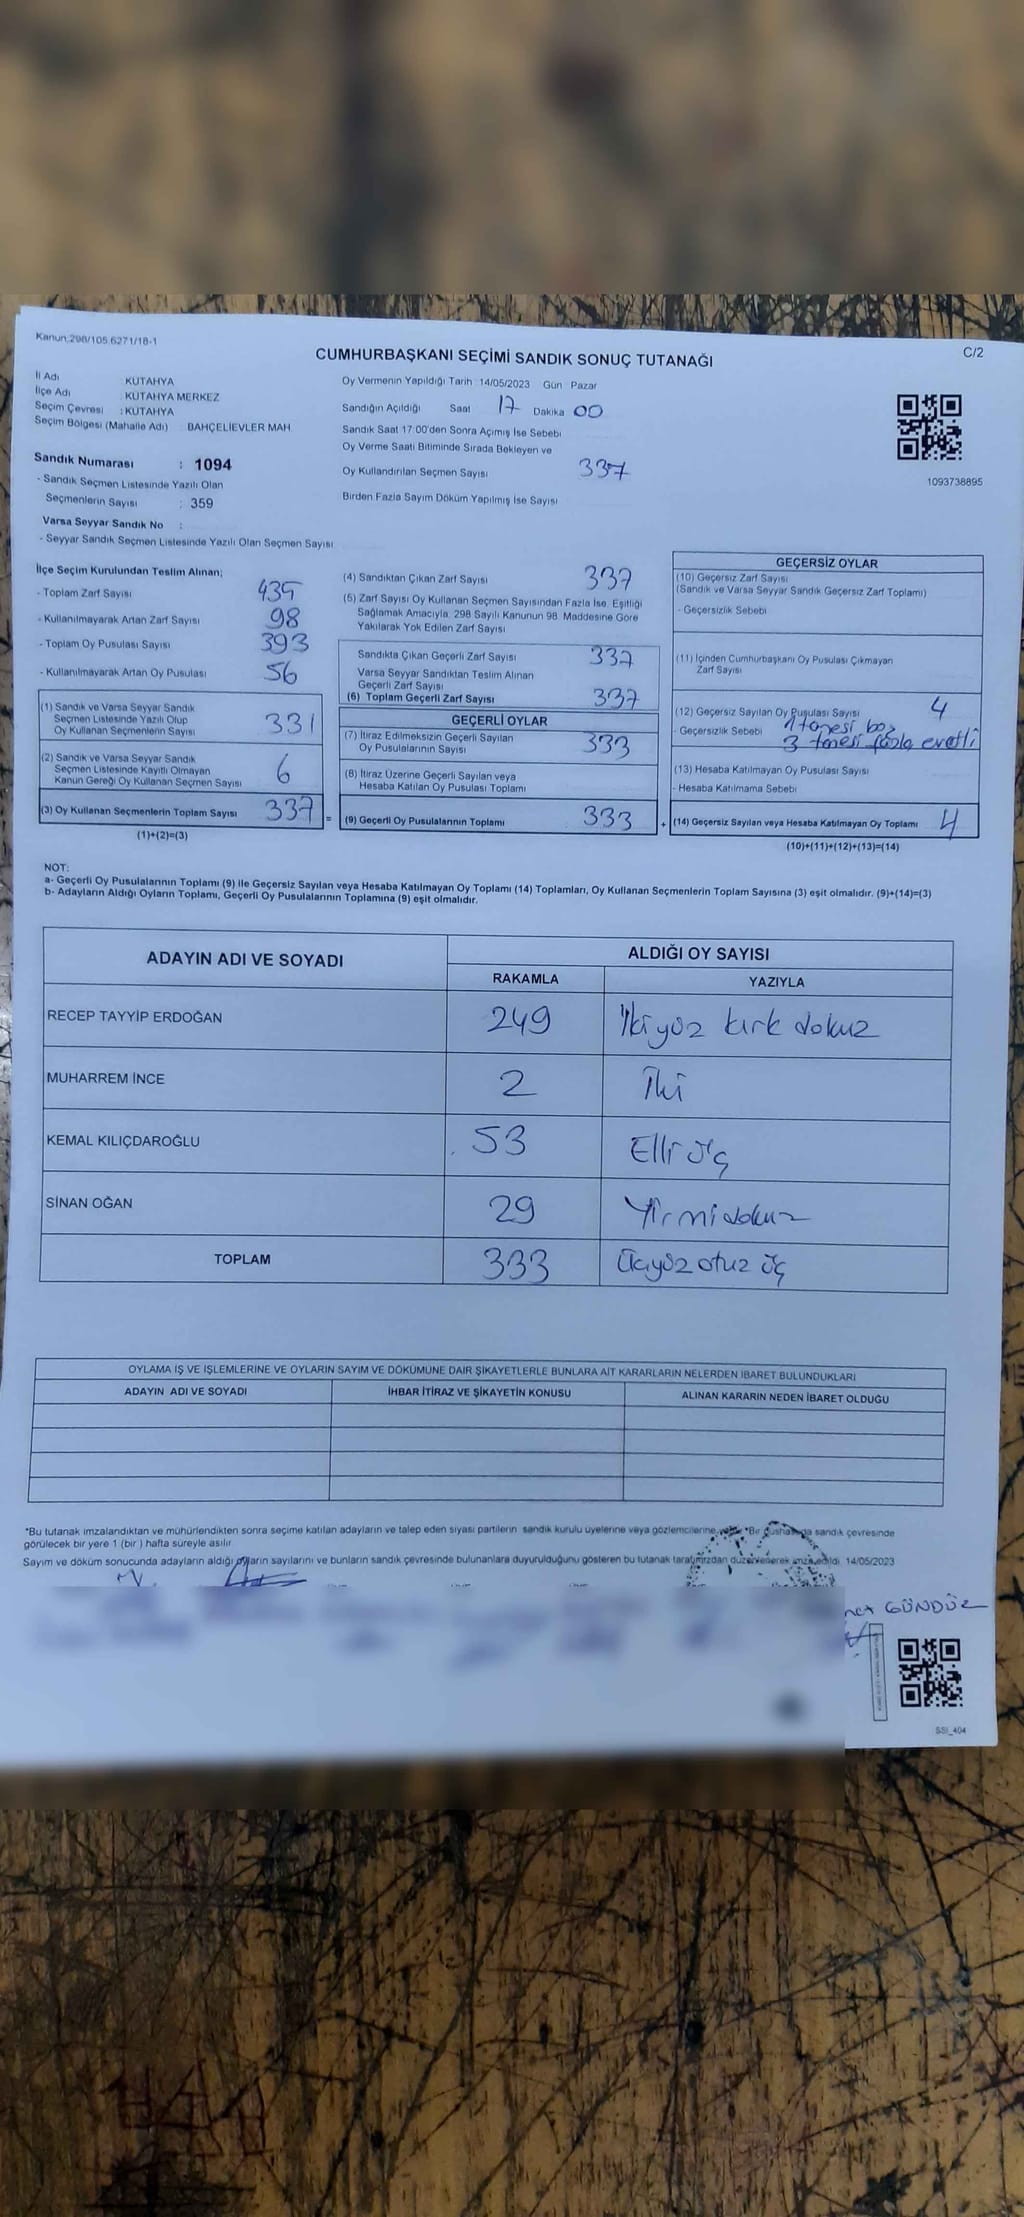 Kanun:298/105.6271/18-1
C/2
CUMHURBAŞKANI SEÇİMİ SANDIK SONUÇ TUTANAĞI
İl Adı : KÜTAHYA
İlçe Adı : KÜTAHYA MERKEZ
Seçim Çevresi : KÜTAHYA
Seçim Bölgesi (Mahalle Adı) BAHÇELİEVLER MAH
Sandık Numarası : 1094
- Sandık Seçmen Listesinde Yazılı Olan
Seçmenlerin Sayısı : 359
Varsa Seyyar Sandık No :
- Seyyar Sandık Seçmen Listesinde Yazılı Olan Seçmen Sayısı
Oy Vermenin Yapıldığı Tarih 14/05/2023 Gün Pazar
Sandığın Açıldığı Saat 17 Dakika 00
Sandık Saat 17:00'den Sonra Açımış İse Sebebi
Oy Verme Saati Bitiminde Sırada Bekleyen ve
Oy Kullandırılan Seçmen Sayısı 337
Birden Fazla Sayım Döküm Yapılmış İse Sayısı
1093738895
İlçe Seçim Kurulundan Teslim Alınan;
- Toplam Zarf Sayısı 435
- Kullanılmayarak Artan Zarf Sayısı 98
- Toplam Oy Pusulası Sayısı 393
- Kullanılmayarak Artan Oy Pusulası 56
(1) Sandık ve Varsa Seyyar Sandık
Seçmen Listesinde Yazılı Olup
Oy Kullanan Seçmenlerin Sayısı 331
(2) Sandık ve Varsa Seyyar Sandık
Seçmen Listesinde Kayıtlı Olmayan
Kanun Gereği Oy Kullanan Seçmen Sayısı 6
(3) Oy Kullanan Seçmenlerin Toplam Sayısı 337 =
(1)+(2)=(3)
(4) Sandıktan Çıkan Zarf Sayısı 337
(5) Zarf Sayısı Oy Kullanan Seçmen Sayısından Fazla İse, Eşitliği
Sağlamak Amacıyla, 298 Sayılı Kanunun 98. Maddesine Göre
Yakılarak Yok Edilen Zarf Sayısı
Sandıkta Çıkan Geçerli Zarf Sayısı 337
Varsa Seyyar Sandıktan Teslim Alınan
Geçerli Zarf Sayısı
(6) Toplam Geçerli Zarf Sayısı 337
GEÇERLİ OYLAR
(7) İtiraz Edilmeksizin Geçerli Sayılan
Oy Pusulalarının Sayısı 333
(8) İtiraz Üzerine Geçerli Sayılan veya
Hesaba Katılan Oy Pusulası Toplamı
(9) Geçerli Oy Pusulalarının Toplamı 333 +
GEÇERSİZ OYLAR
(10) Geçersiz Zarf Sayısı
(Sandık ve Varsa Seyyar Sandık Geçersiz Zarf Toplamı)
- Geçersizlik Sebebi
(11) İçinden Cumhurbaşkanı Oy Pusulası Çıkmayan
Zarf Sayısı
(12) Geçersiz Sayılan Oy Pusulası Sayısı 4
- Geçersizlik Sebebi 1 tanesi boş
3 tanesi fazla evetli
(13) Hesaba Katılmayan Oy Pusulası Sayısı
- Hesaba Katılmama Sebebi
(14) Geçersiz Sayılan veya Hesaba Katılmayan Oy Toplamı 4
(10)+(11)+(12)+(13)=(14)
NOT:
a- Geçerli Oy Pusulalarının Toplamı (9) ile Geçersiz Sayılan veya Hesaba Katılmayan Oy Toplamı (14) Toplamları, Oy Kullanan Seçmenlerin Toplam Sayısına (3) eşit olmalıdır. (9)+(14)=(3)
b- Adayların Aldığı Oyların Toplamı, Geçerli Oy Pusulalarının Toplamına (9) eşit olmalıdır.
ADAYIN ADI VE SOYADI ALDIĞI OY SAYISI
RAKAMLA YAZIYLA
RECEP TAYYİP ERDOĞAN 249 İkiyüz kırk dokuz
MUHARREM İNCE 2 İki
KEMAL KILIÇDAROĞLU 53 Elli üç
SİNAN OĞAN 29 Yirmi dokuz
TOPLAM 333 Üçyüz otuz üç
OYLAMA İŞ VE İŞLEMLERİNE VE OYLARIN SAYIM VE DÖKÜMÜNE DAİR ŞİKAYETLERLE BUNLARA AİT KARARLARIN NELERDEN İBARET BULUNDUKLARI
ADAYIN ADI VE SOYADI İHBAR İTİRAZ VE ŞİKAYETİN KONUSU ALINAN KARARIN NEDEN İBARET OLDUĞU
*Bu tutanak imzalandıktan ve mühürlendikten sonra seçime katılan adayların ve talep eden siyasi partilerin sandık kurulu üyelerine veya gözlemcilerine *Bir sandık çevresinde
görülecek bir yere 1 (bir) hafta süreyle asılır.
Sayım ve döküm sonucunda adayların aldığı oyların sayılarını ve bunların sandık çevresinde bulunanlara duyurulduğunu gösteren bu tutanak tarafımızdan düzenlenerek imza edildi. 14/05/2023
GÜNDÜZ
SSI_404